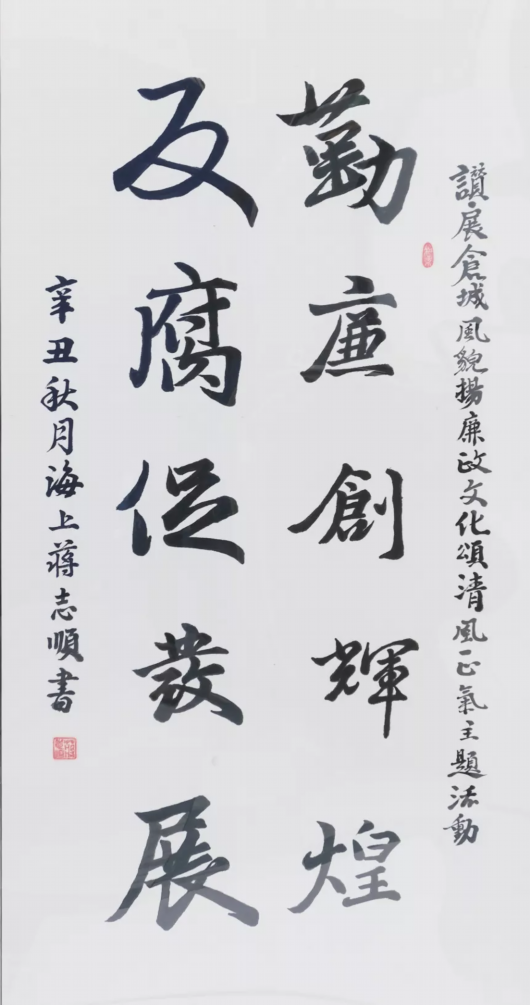 讃·展倉城風貌揚廉政文化頌清風正氣主題活動
勤廉創輝煌
反腐促發展
辛丑秋月海上蔣志順書